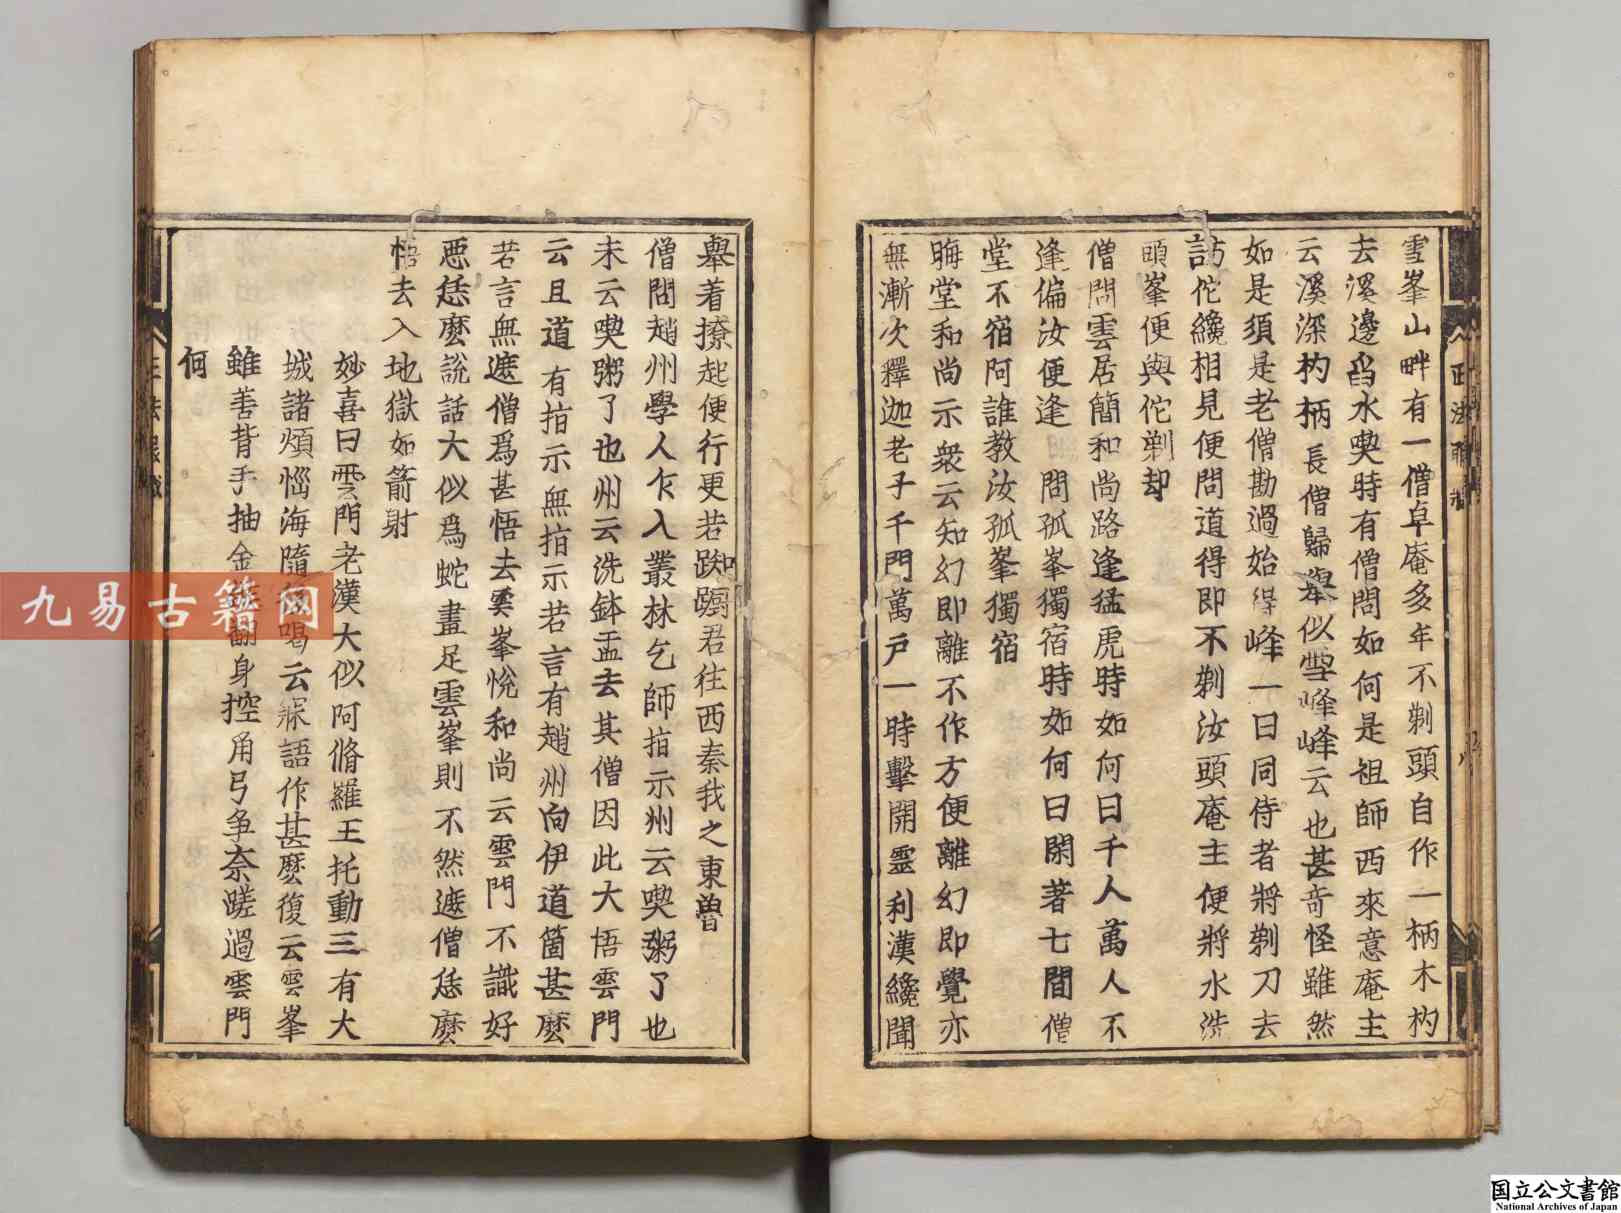 雪峯山畔有一僧卓庵多年不剃頭自作一柄木杓
去溪邊舀水喫時有僧問如何是祖師西來意庵主
云溪深杓柄長僧歸舉似雪峰峰云也甚奇怪雖然
如是須是老僧勘過始得峰一日同侍者將剃刀去
訪佗纔相見便問道得即不剃汝頭庵主便將水洗
頭峯便與佗剃却
僧問雲居簡和尚路逢猛虎時如何曰千人萬人不
逢偏汝便逢　問孤峯獨宿時如何曰閑著七間僧
堂不宿阿誰教汝孤峯獨宿
晦堂和尚示衆云知幻即離不作方便離幻即覺亦
無漸次釋迦老子千門萬戸一時擊開靈利漢纔聞
舉着撩起便行更若踟躅君往西秦我之東魯
僧問趙州學人乍入叢林乞師指示州云喫粥了也
未云喫粥了也州云洗鉢盂去其僧因此大悟雲門
云且道有指示無指示若言有趙州向伊道箇甚麽
若言無遮僧爲甚悟去雲峯悅和尚云雲門不識好
惡恁麽說話大似爲蛇畫足雲峯則不然遮僧恁麽
悟去入地獄如箭射
妙喜曰雲門老漢大似阿脩羅王托動三有大
城諸煩惱海隨喝云寐語作甚麽復云雲峯
雖善背手抽金翻身控角弓争奈蹉過雲門
何
正法眼藏
九易古籍网
国立公文書館
National Archives of Japan